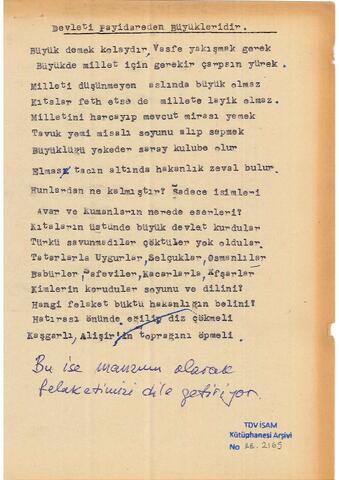 Devleti Payidareden Büyükleridir.
Büyük demek kolaydır, Vasfe yakışmak gerek
Büyükde millet için gerekir çarpsın yürek.
Milleti düşünmeyen aslında büyük olmaz
Kıtalar feth etse de millete layik olmaz.
Milletini harcayıp mevcut mirası yemek
Tavuk yemi misalı soyunu alıp sepmek
Büyüklüğü yokeder saray kulube olur
Elmas tacın altında hakanlık zeval bulur.
Hunlardan ne kalmıştır? Sadece isimleri
Avar ve Kumanların nerede eserleri?
Kıtaların üstünde büyük devlet kurdular
Türkü savunmadılar çöktüler yok oldular.
Tatarlarla Uygurlar, Selçuklar, Osmanlılar
Babürler, Safeviler, Kacarlarla, Afşarlar
Kimlerin korudular soyunu ve dilini?
Hangi felaket büktü hakanlığın belini?
Hatırası önünde eğilip diz çökmeli
Kaşgarlı, Alişir'in toprağını öpmeli.
Bu ise manzum olarak
felaketimizi dile getiriyor.
TDV İSAM
Kütüphanesi Arşivi
No 2E. 2165